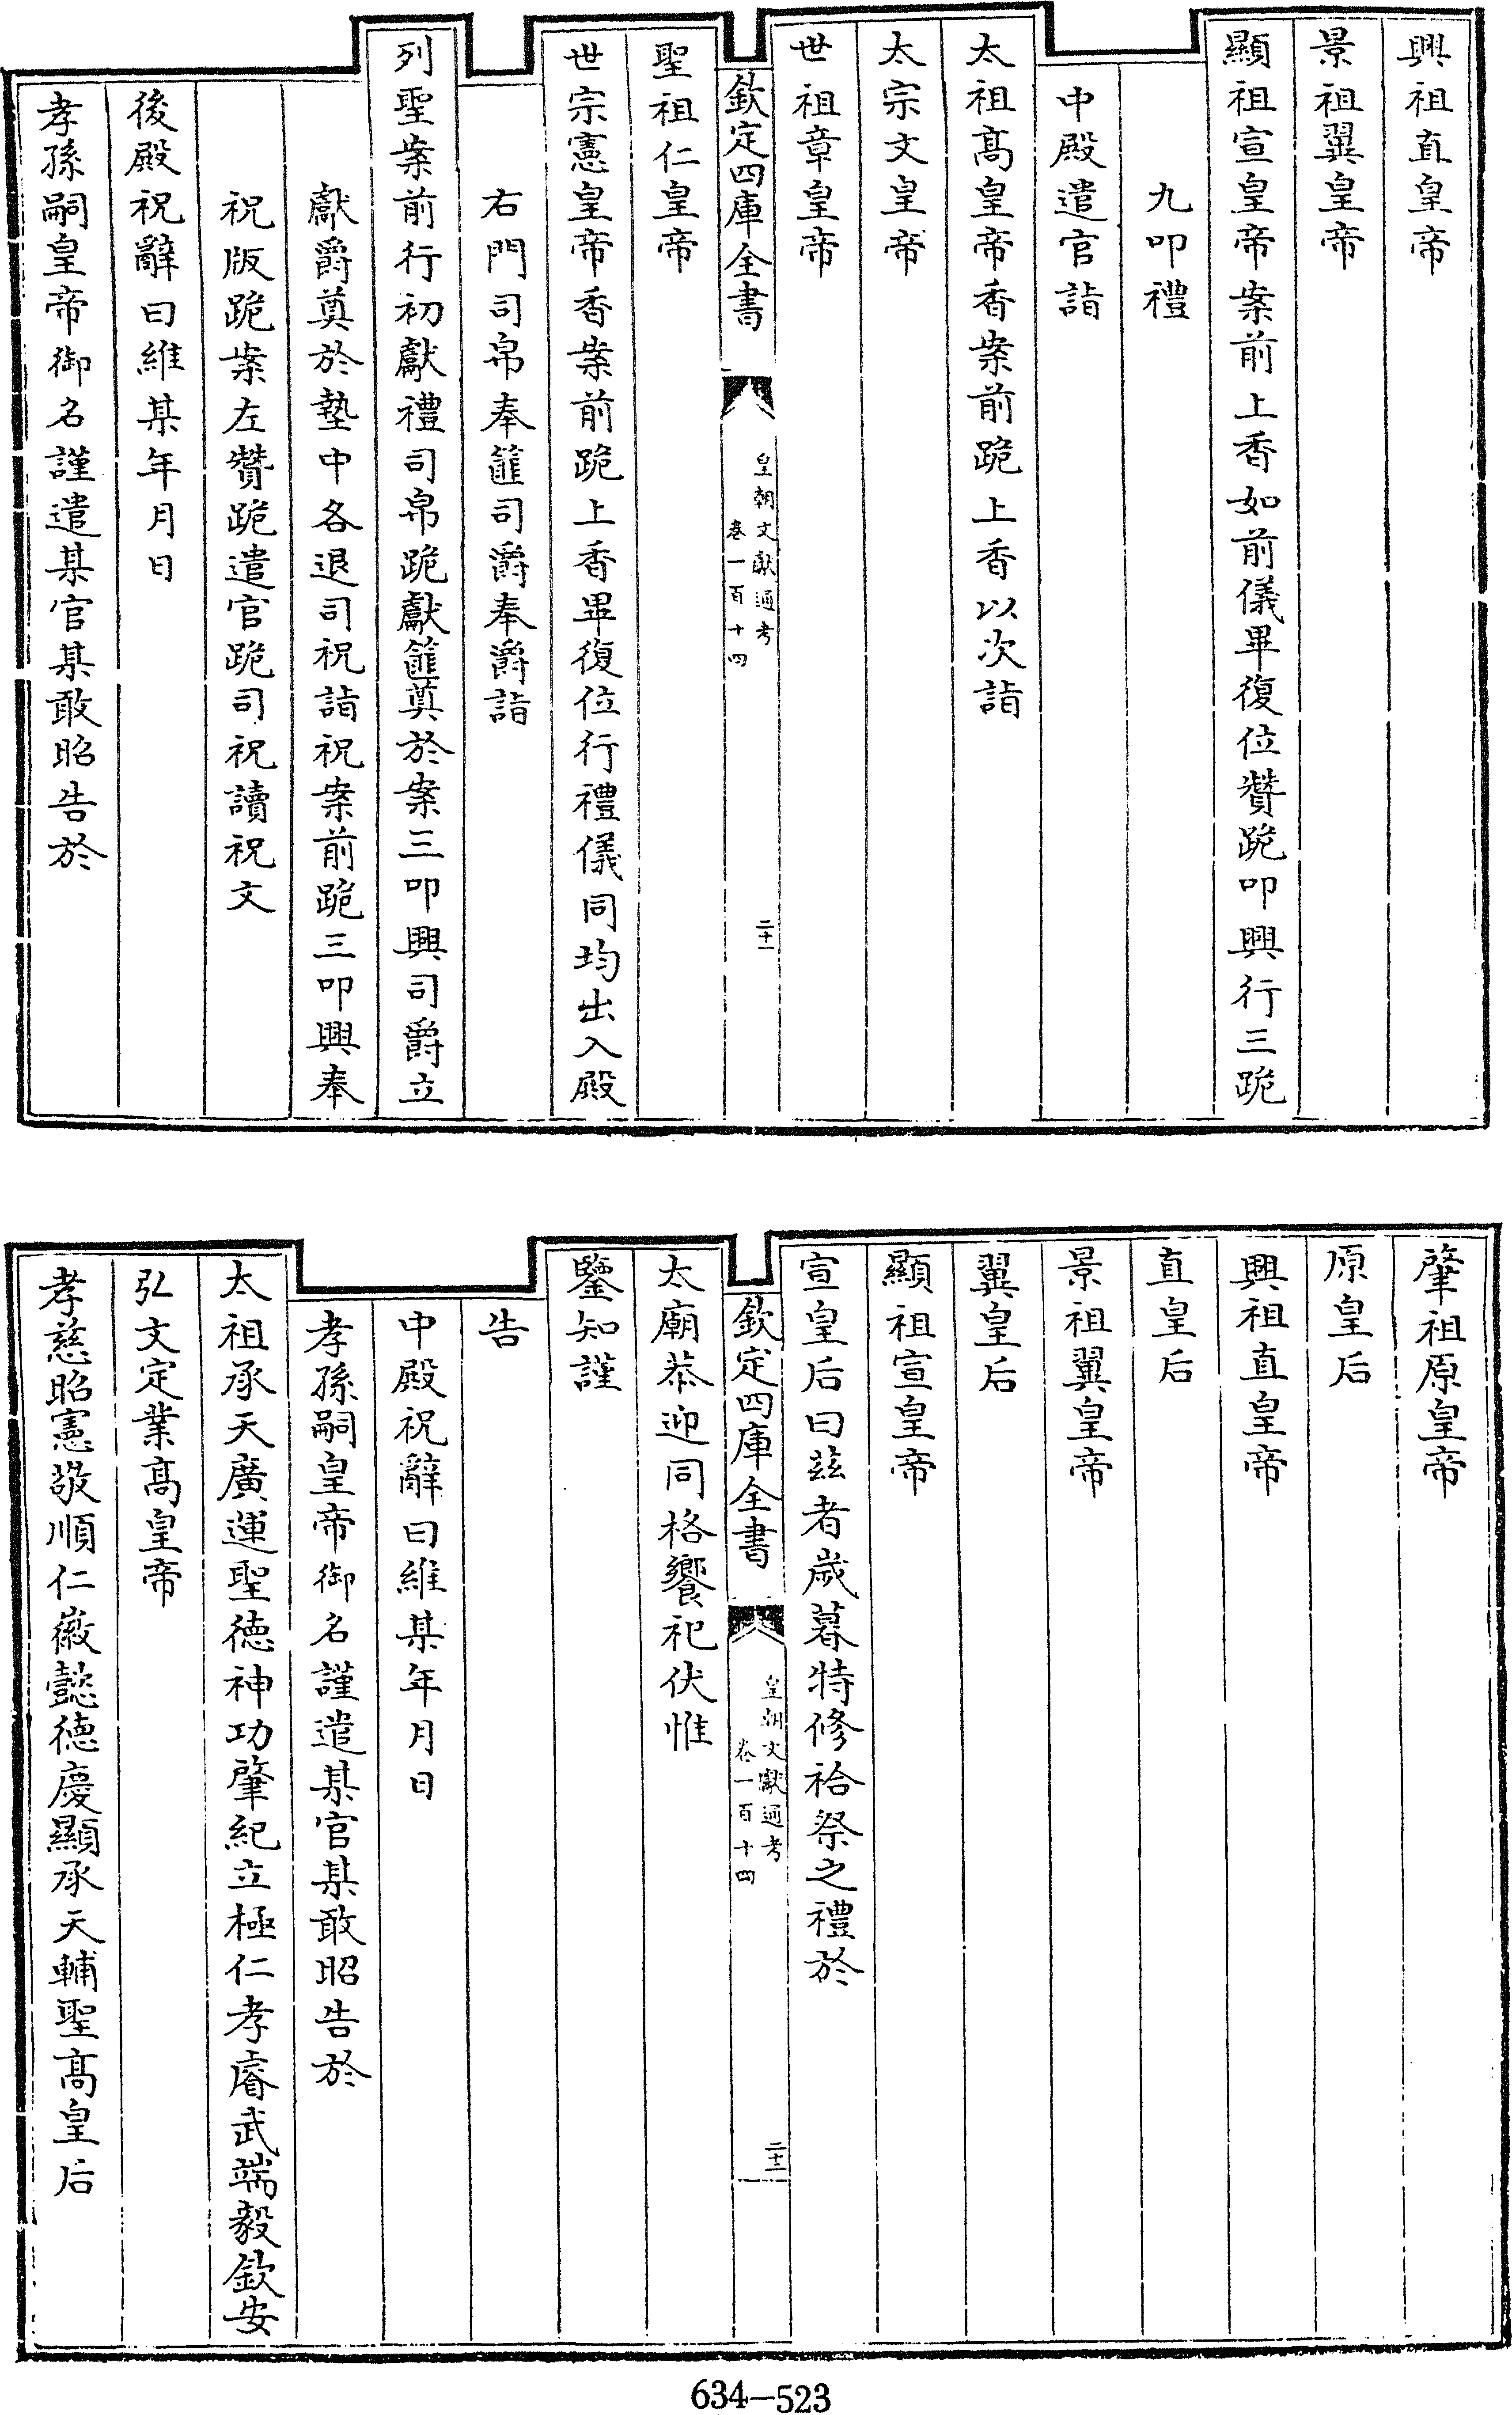 興祖直皇帝
景祖翼皇帝
顯祖宣皇帝案前上香如前儀畢復位贊跪叩興行三跪
九叩禮
中殿遣官詣
太祖髙皇帝香案前跪上香以次詣
太宗文皇帝
世祖章皇帝
欽定四庫全書
皇朝文獻通考
卷一百十四
二十一
聖祖仁皇帝
世宗憲皇帝香案前跪上香畢復位行禮儀同均出入殿
右門司帛奉篚司爵奉爵詣
列聖案前行初獻禮司帛跪獻篚奠於案三叩興司爵立
獻爵奠於墊中各退司祝詣祝案前跪三叩興奉
祝版跪案左贊跪遣官跪司祝讀祝文
後殿祝辭曰維某年月日
孝孫嗣皇帝御名謹遣某官某敢昭告於
肇祖原皇帝
原皇后
興祖直皇帝
直皇后
景祖翼皇帝
翼皇后
顯祖宣皇帝
宣皇后曰兹者歲暮特修祫祭之禮於
欽定四庫全書
皇朝文獻通考
卷一百十四
二十二
太廟恭迎同格饗祀伏惟
鑒知謹
告
中殿祝辭曰維某年月日
孝孫嗣皇帝御名謹遣某官某敢昭告於
太祖承天廣運聖德神功肇紀立極仁孝睿武端毅欽安
弘文定業髙皇帝
孝慈昭憲敬順仁徽懿德慶顯承天輔聖髙皇后
634—523